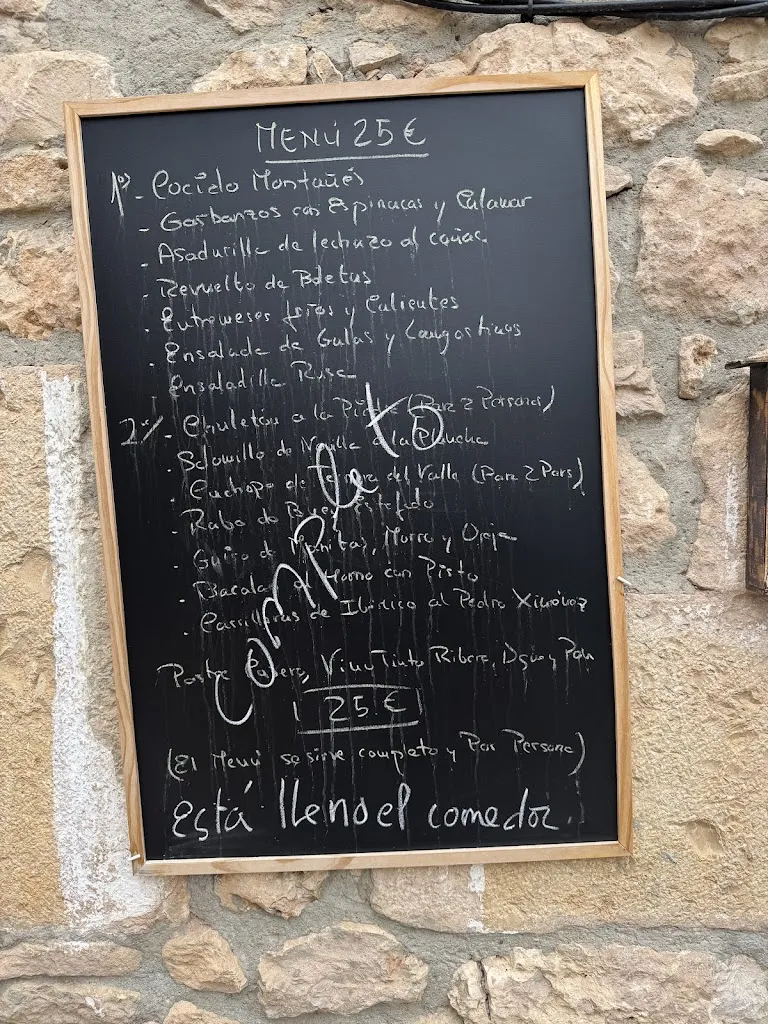 MENÚ 25 €
1º - Cocido Montañés
- Garbanzos con Espinacas y Calamar
- Asadurilla de lechazo al coñac
- Revuelto de Boletus
- Entremeses fríos y Calientes
- Ensalada de Gulas y Langostinos
- Ensaladilla Rusa
2º - Chuletón a la Piedra (Para 2 Personas)
- Solomillo de Novilla a la Plancha
- Cachopo de Ternera del Valle (Para 2 Pers)
- Rabo de Buey Estofado
- Guiso de Manitas, Morro y Oreja
- Bacalao al Horno con Pisto
- Carrilleras de Ibérico al Pedro Ximénez
Postre Casero, Vino Tinto Ribera, Agua y Pan
25 €
(El Menú se sirve completo y Por Persona)
Completo
Está lleno el comedor.